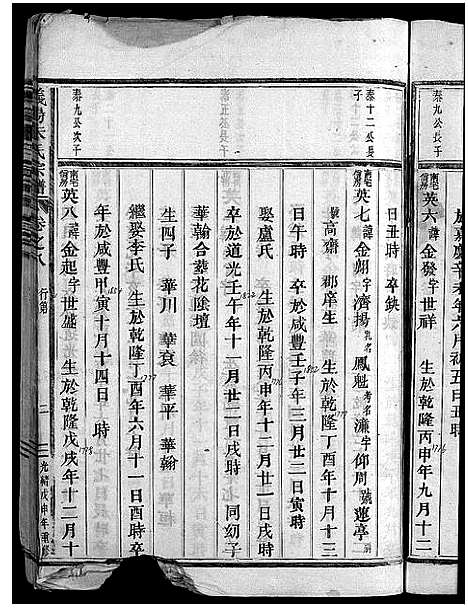 泰九公長子
英六諱金發字世祥 生於乾隆丙申年九月十二
1776
於嘉慶辛未年六月初五日丑時
日丑時 卒缺
泰十二公長子
英七諱金烱字濟揚乳名鳳魁考名濂字仰周號蓮亭
號高齋 郡庠生 生於乾隆丁酉年十月十三
1777
日午時 卒於咸豐壬子年三月廿二日寅時
1852
娶盧氏 生於乾隆丙申年十二月初一日戌時
1776
卒於道光壬午年十一月廿二日戌時 同幼子
1822
華翰合葬花陰壇
生四子 華川 華袞 華平 華翰
繼娶李氏 生於乾隆丁酉年六月十一日酉時 卒
1777
年於咸豐甲寅十月十四日 時
1854
泰九公次子
英八諱金起字世盛 生於乾隆戊戌年十二月十
1778
義陽朱氏宗譜 卷之八 行第 三 光緒戊申年重修